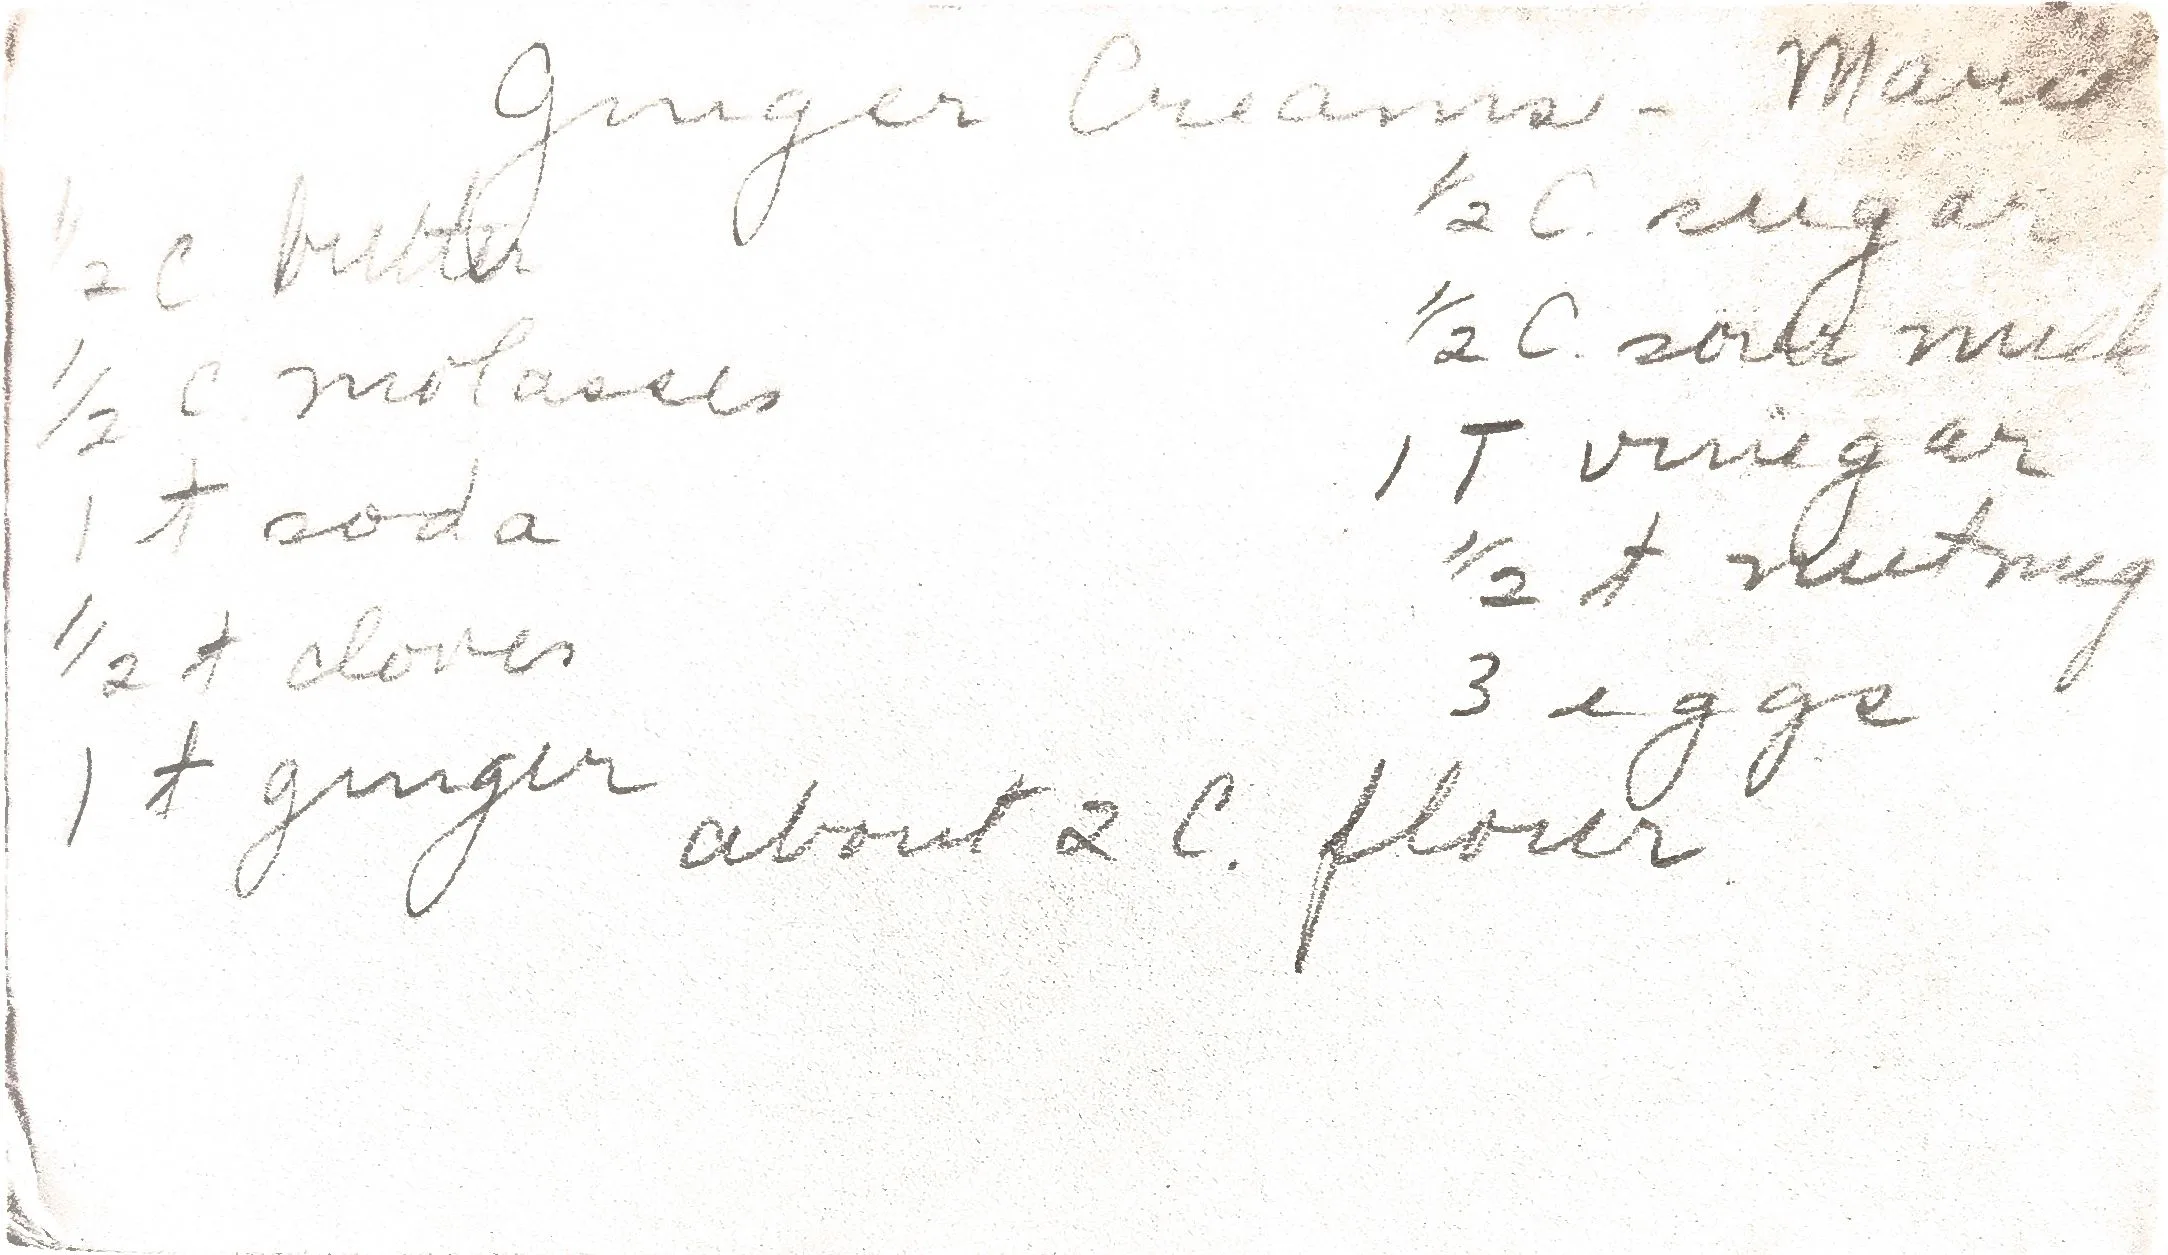 Ginger Creams -
½ C butter
½ C. molasses
1 t soda
½ t cloves
1 t ginger
½ C. sugar
½ C. sour milk
1 T vinegar
½ t nutmeg
3 eggs
about 2 C. flour